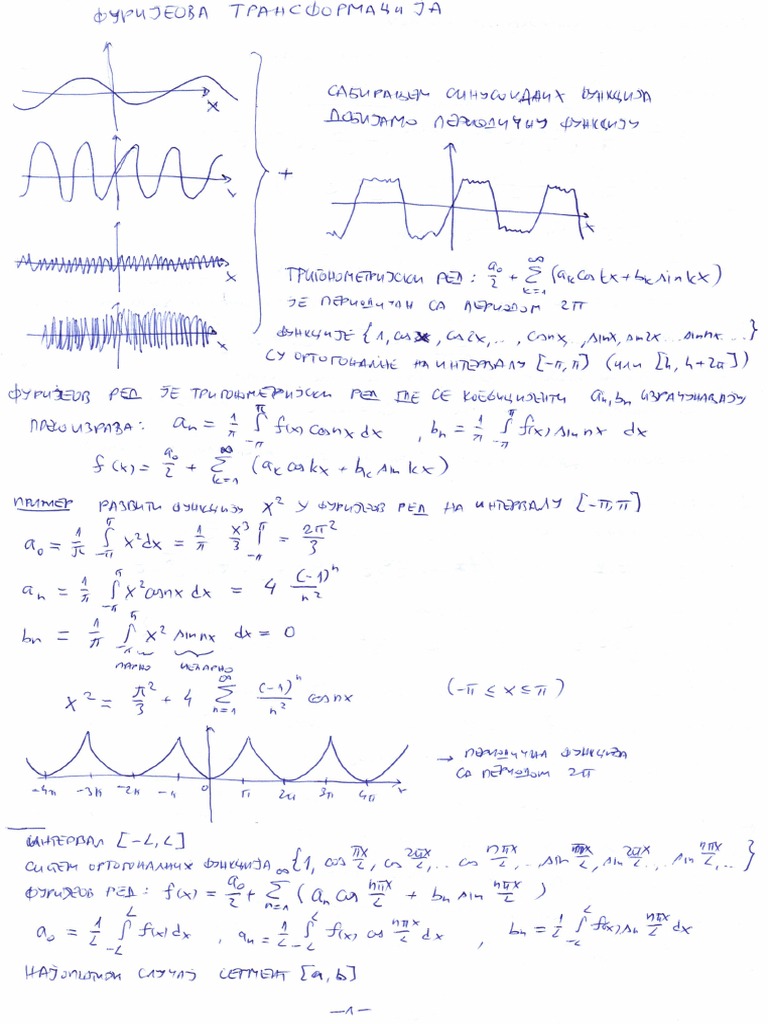 ФУРИЈЕОВА ТРАНСФОРМАЦИЈА
x
САБИРАЊЕМ СИНУСОИДНИХ ФУНКЦИЈА
ДОБИЈАМО ПЕРИОДИЧНУ ФУНКЦИЈУ
+
x
x
ТРИГОНОМЕТРИЈСКИ РЕД: a₀/2 + ∑_{k=1}^{∞} (aₖ cos kx + bₖ sin kx)
ЈЕ ПЕРИОДИЧАН СА ПЕРИОДОМ 2π
ФУНКЦИЈЕ {1, cos x, cos 2x, ..., cos nx, ..., sin x, sin 2x ... sin nx ...}
СУ ОРТОГОНАЛНЕ НА ИНТЕРВАЛУ [-π, π] (ИЛИ [h, h+2π])
ФУРИЈЕОВ РЕД ЈЕ ТРИГОНОМЕТРИЈСКИ РЕД ГДЕ СЕ КОЕФИЦИЈЕНТИ aₙ, bₙ ИЗРАЧУНАВАЈУ
ПРЕКО ИЗРАЗА: aₙ = 1/π ∫_{-π}^{π} f(x) cos nx dx , bₙ = 1/π ∫_{-π}^{π} f(x) sin nx dx
f(x) = a₀/2 + ∑_{k=1}^{∞} (aₖ cos kx + bₖ sin kx)
ПРИМЕР РАЗВИТИ ФУНКЦИЈУ x² У ФУРИЈЕОВ РЕД НА ИНТЕРВАЛУ [-π, π]
a₀ = 1/π ∫_{-π}^{π} x² dx = 1/π x³/3 |_{-π}^{π} = 2π²/3
aₙ = 1/π ∫_{-π}^{π} x² cos nx dx = 4 (-1)ⁿ/n²
bₙ = 1/π ∫_{-π}^{π} x² sin nx dx = 0
ПАРНО НЕПАРНО
x² = π²/3 + 4 ∑_{n=1}^{∞} (-1)ⁿ/n² cos nx (-π ≤ x ≤ π)
→ ПЕРИОДИЧНА ФУНКЦИЈА
СА ПЕРИОДОМ 2π
-4π -3π -2π -π 0 π 2π 3π 4π x
ИНТЕРВАЛ [-L, L]
СИСТЕМ ОРТОГОНАЛНИХ ФУНКЦИЈА {1, cos πx/L, cos 2πx/L, ... cos nπx/L, ... sin πx/L, sin 2πx/L, ..., sin nπx/L, ...}
ФУРИЈЕОВ РЕД: f(x) = a₀/2 + ∑_{n=1}^{∞} (aₙ cos nπx/L + bₙ sin nπx/L)
a₀ = 1/L ∫_{-L}^{L} f(x) dx , aₙ = 1/L ∫_{-L}^{L} f(x) cos nπx/L dx , bₙ = 1/L ∫_{-L}^{L} f(x) sin nπx/L dx
НАЈОПШТИЈИ СЛУЧАЈ СЕГМЕНТ [a, b]
-1-